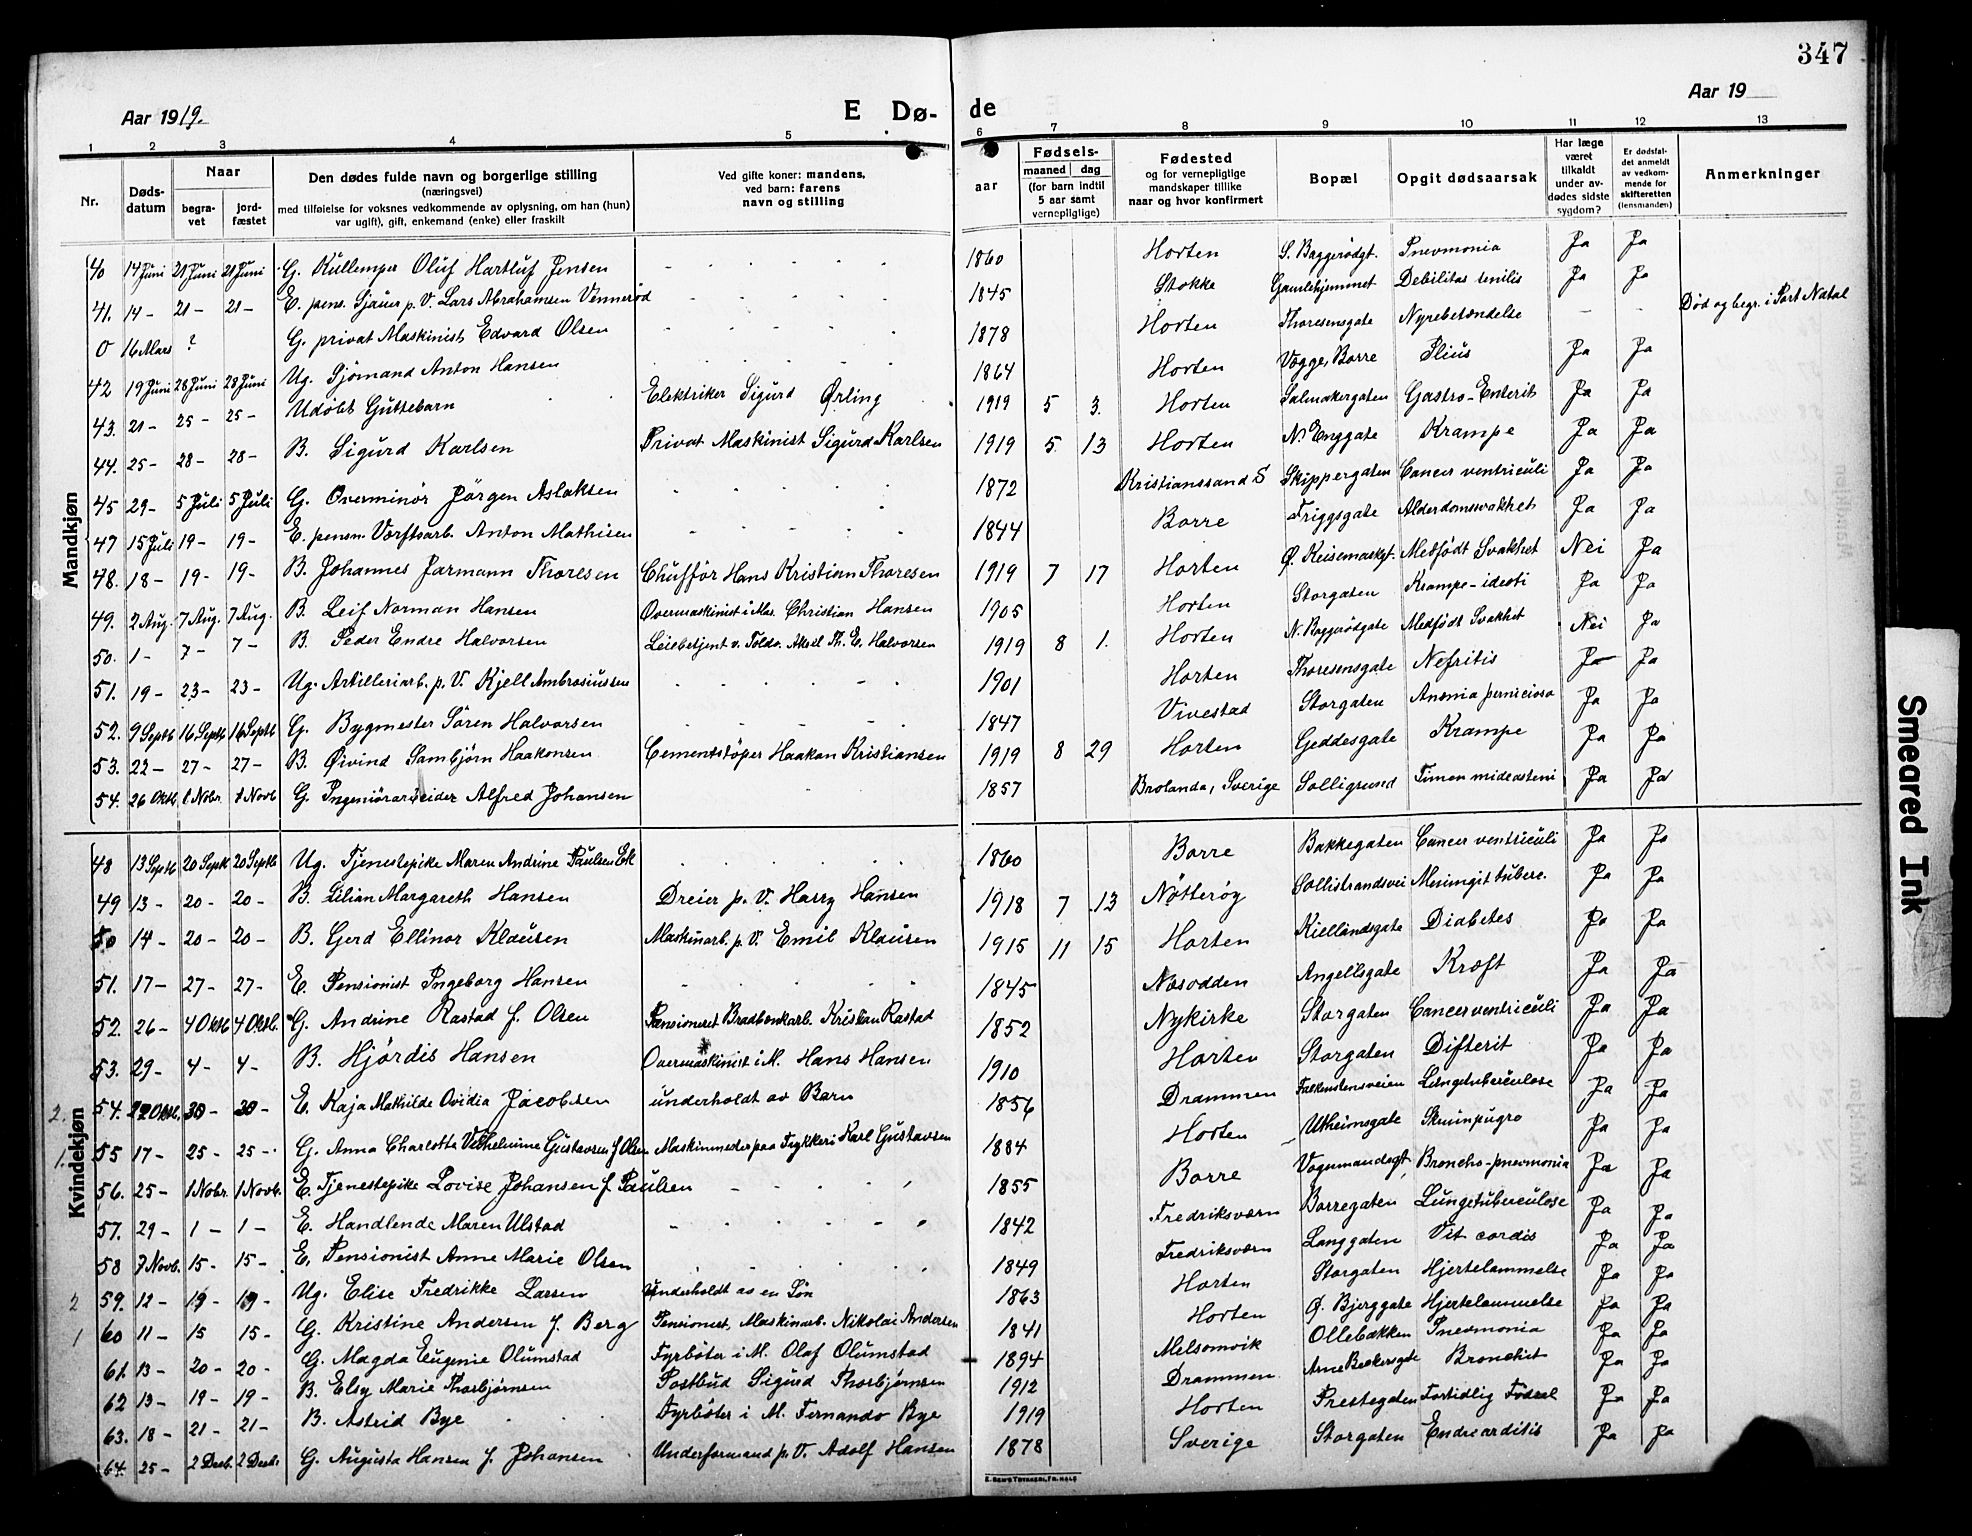 347
Aar 1919.
E Dø-
de
Aar 19
1 2 3 4 5 6 7 8 9 10 11 12 13
Nr.
Døds-datum
Naar
begra-vet
jord-fæstet
Den dødes fulde navn og borgerlige stilling
(næringsvei)
med tilføielse for voksnes vedkommende av oplysning, om han (hun)
var ugift), gift, enkemand (enke) eller fraskilt
Ved gifte koner: mandens,
ved barn: farens
navn og stilling
Fødsels-
aar
maaned dag
(for barn indtil
5 aar samt
vernepligtige)
Fødested
og for vernepligtige
mandskaper tillike
naar og hvor konfirmert
Bopæl
Opgit dødsaarsak
Har læge
været
tilkaldt
under av-
dødes sidste
sygdom?
Er dødsfal-
det anmeldt
av vedkom-
mende for
skifteretten
(lensmanden)
Anmerkninger
Mandkjøn
40 14 Juni 21 Juni 21 Juni G. Kullemper Oluf Hartluf Jensen 1860 Horten S. Baggerødgt. Pnevmonia Ja Ja
41. 14 - 21 - 21 - E. pens. Sjauer p. V. Lars Abrahamsen Vennerød 1845 Stokke Gamlehjemmet Debilitas senilis Ja Ja
0 16 Mars ? G. privat Maskinist Edvard Olsen 1878 Horten Thoresensgate Nyrebetændelse - - Død og begr. i Port Natal
42 19 Juni 28 Juni 28 Juni Ug. Sjømand Anton Hansen 1864 Horten Vogge, Borre Ja Ja
43. 21 - 25 - 25 - Udøbt Guttebarn Elektriker Sigurd Ørling 1919 5 3. Horten Salmakergaten Gastro-Enterit Ja Ja
44. 25 - 28 - 28 - B. Sigurd Karlsen Privat Maskinist Sigurd Karlsen 1919 5 13 Horten N. Enggate Krampe Ja Ja
45 29 - 5 Juli 5 Juli G. Overminør Jørgen Aslaksen 1872 Kristianssand S Skippergaten Cancer ventriculi Ja Ja
47 15 Juli 19 - 19 - E. pensn. Værftsarb. Anton Mathisen 1844 Borre Friggsgate Alderdomssvakhet Ja Ja
48. 18 - 19 - 19 - B. Johannes Jarmann Thoresen Chufför Hans Kristian Thoresen 1919 7 17 Horten Ø. Keisemarkgt. Medfødt Svakhet Nei Ja
49. 2 Aug. 7 Aug. 7 Aug. B. Leif Norman Hansen Overmaskinist i Mar. Christian Hansen 1905 Horten Storgaten Krampe-idioti Ja Ja
50. 1 - 7 - 7 - B. Peder Endre Halvorsen Leiebetjent v. Toldv. Aksel Th. E. Halvorsen 1919 8 1. Horten N. Baggerødgate Medfødt Svakhet Nei Ja
51. 19 - 23 - 23 - Ug. Artilleriarb. p. V. Kjell Ambrosiussen 1901 Horten Thoresensgate Nefritis Ja Ja
52. 9 Septb 16 Septb 16 Septb G. Bygmester Søren Halvorsen 1847 Vivestad Storgaten Anæmia perniciosa Ja Ja
53. 22 - 27 - 27 - B. Øivind Sambjørn Haakonsen Cementstøper Haakan Kristiansen 1919 8 29 Horten Geddesgate Krampe Ja Ja
54. 26 Oktb 1 Nobr. 1 Novb G. Ingeniørarbeider Alfred Johansen 1857 Brolanda, Sverige Solligrund Ja Ja
Kvindekjøn
48 13 Septb 20 Septb 20 Septb Ug. Tjenestepike Maren Andrine Paulsen Ek 1860 Borre Bakkegaten Cancer ventriculi Ja Ja
49 13 - 20 - 20 - B. Lilian Margareth Hansen Dreier p. V. Harry Hansen 1918 7 13 Nøtterøy Sollistrandsvei Meningit tuberc. Ja Ja
50 14 - 20 - 20 - B. Gerd Ellinor Klausen Maskinarb. p. V. Emil Klausen 1915 11 15 Horten Kiellandsgate Diabetes Ja Ja
51. 17 - 27 - 27 - E. Pensionist Ingeborg Hansen 1845 Næsodden Angellsgate Kræft Ja Ja
52. 26 - 4 Oktb 4 Oktb. G. Andrine Rastad f. Olsen Pensioneret Brødbænkarb. Kristian Rastad 1852 Nykirke Storgaten Cancer ventriculi Ja Ja
53. 29 - 4 - 4 - B. Hjørdis Hansen Overmaskinist i M. Hans Hansen 1910 Horten Storgaten Difterit Ja Ja
2. 54. 22 Oktb. 30 - 30 - E. Kaja Mathilde Ovidia Jacobsen underholdt av Barn 1856 Drammen Falkenstensveien Lungetuberculose Ja Ja
1. 55 17 - 25 - 25 - G. Anna Charlotta Vilhelmine Gustavsen f. Olsen Maskinmeder paa Trykkeri Karl Gustavsen 1884 Horten Utheimsgate Ja Ja
56. 25 - 1 Nobr. 1 Novb. E. Tjenestepike Lovise Johansen f. Paulsen 1855 Borre Vognmandsgt. Broncho-pnevmonia Ja Ja
57. 29 - 1 - 1 - E. Handlende Maren Ulstad 1842 Fredriksværn Borregaten Lungetuberculose Ja Ja
58 7 Novb. 15 - 15 - E. Pensionist Anne Marie Olsen 1849 Fredriksværn Langgaten Vit. cordis Ja Ja
2 59. 12 - 19 - 19 - Ug. Elise Fredrikke Larsen Underholdt av en Søn 1863 Horten Storgaten Hjertelammelse Ja Ja
1 60 11 - 15 15 - G. Kristine Andersen f. Berg Pensionist, Maskinarb. Nikolai Andersen 1841 Horten Ø. Bjerggate Hjertelammelse Ja Ja
61. 13 - 20 - 20 - G. Magda Eugenie Olumstad Fyrbøter i M. Olaf Olumstad 1894 Melsomvik Ollebakken Pnevmonia Ja Ja
62 13 - 19 - 19 - B. Elsy Marie Thorbjørnsen Postbud Sigurd Thorbjørnsen 1912 Drammen Arne Beckersgate Bronchit Ja Ja
63. 18 - 21 - 21 - B. Astrid Bye Fyrbøter i M. Fernando Bye 1919 Horten Prestegaten Fortidlig Fødsel Ja Ja
64. 25 - 2 Decb. 2 Decb. G. Augusta Hansen f. Johansen Underformand p. V. Adolf Hansen 1878 Sverige Storgaten Endicarditis Ja Ja
E. SEM'S TRYKKERI, FR.HALD
Smeared Ink